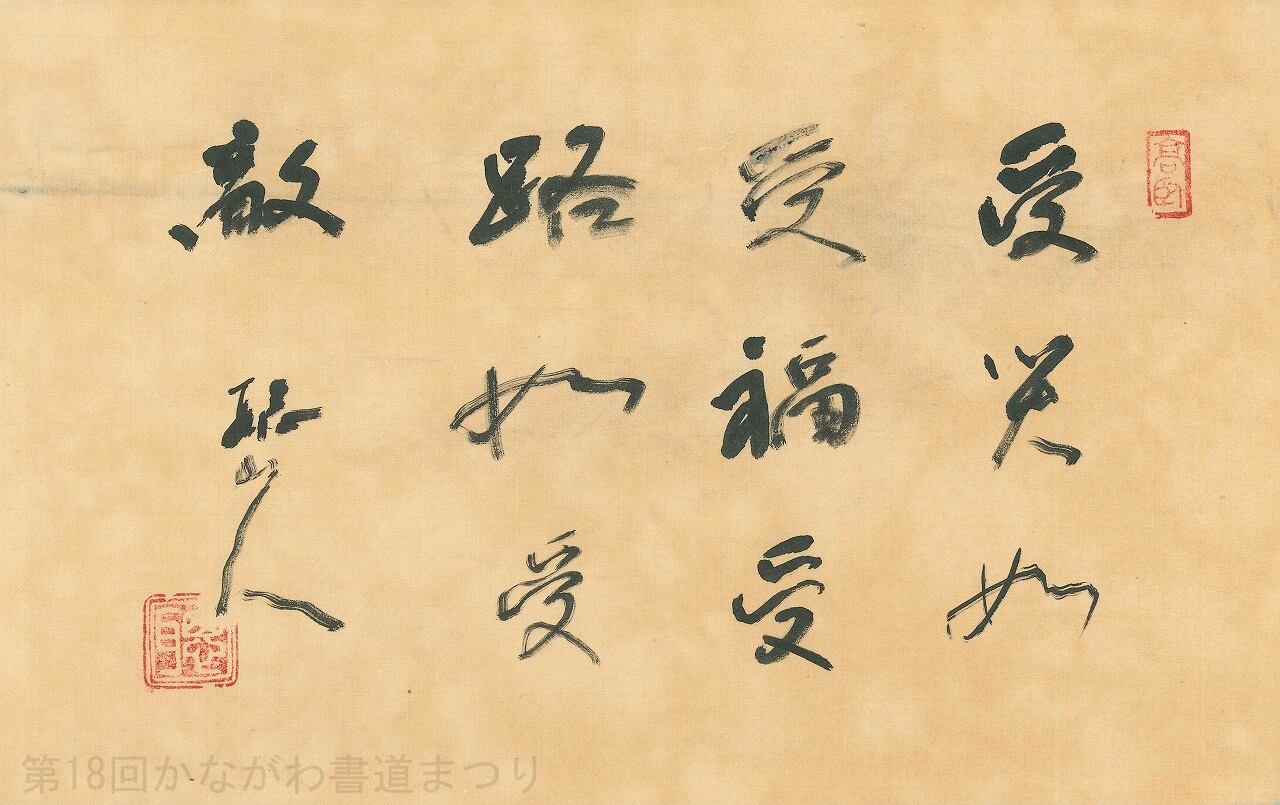 受災如
受福受
降如受
敵
山人
第18回かながわ書道まつり